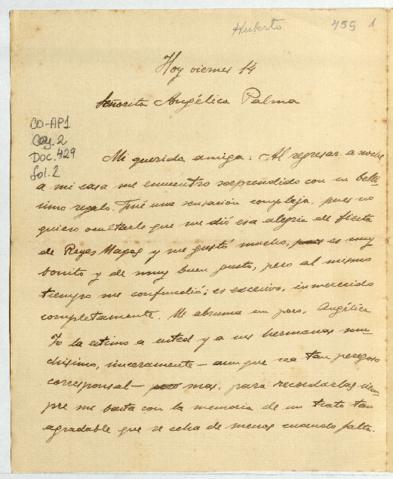 Huberto 459 1
Hoy viernes 14
Señorita Angélica Palma
CO-AP1
Caj. 2
Doc. 429
fol. 2
Mi querida amiga: Al regresar anoche
a mi casa me encuentro sorprendido con su bellí-
simo regalo. Fué una sensación compleja, pues no
quiero ocultarle que me dió esa alegria de fiesta
de Reyes Magos y me gustó mucho, pues es muy
bonito y de muy buen gusto, pero al mismo
tiempo me confundió; es excesivo, inmerecido
completamente. Me abruma un poco, Angélica
Yo la estimo a usted y a sus hermanas mu-
chisimo, sinceramente – aunque sea tan perezoso
corresponsal – mas, para recordarlas siem-
pre me basta con la memoria de un trato tan
agradable que se echa de menos cuando falta.